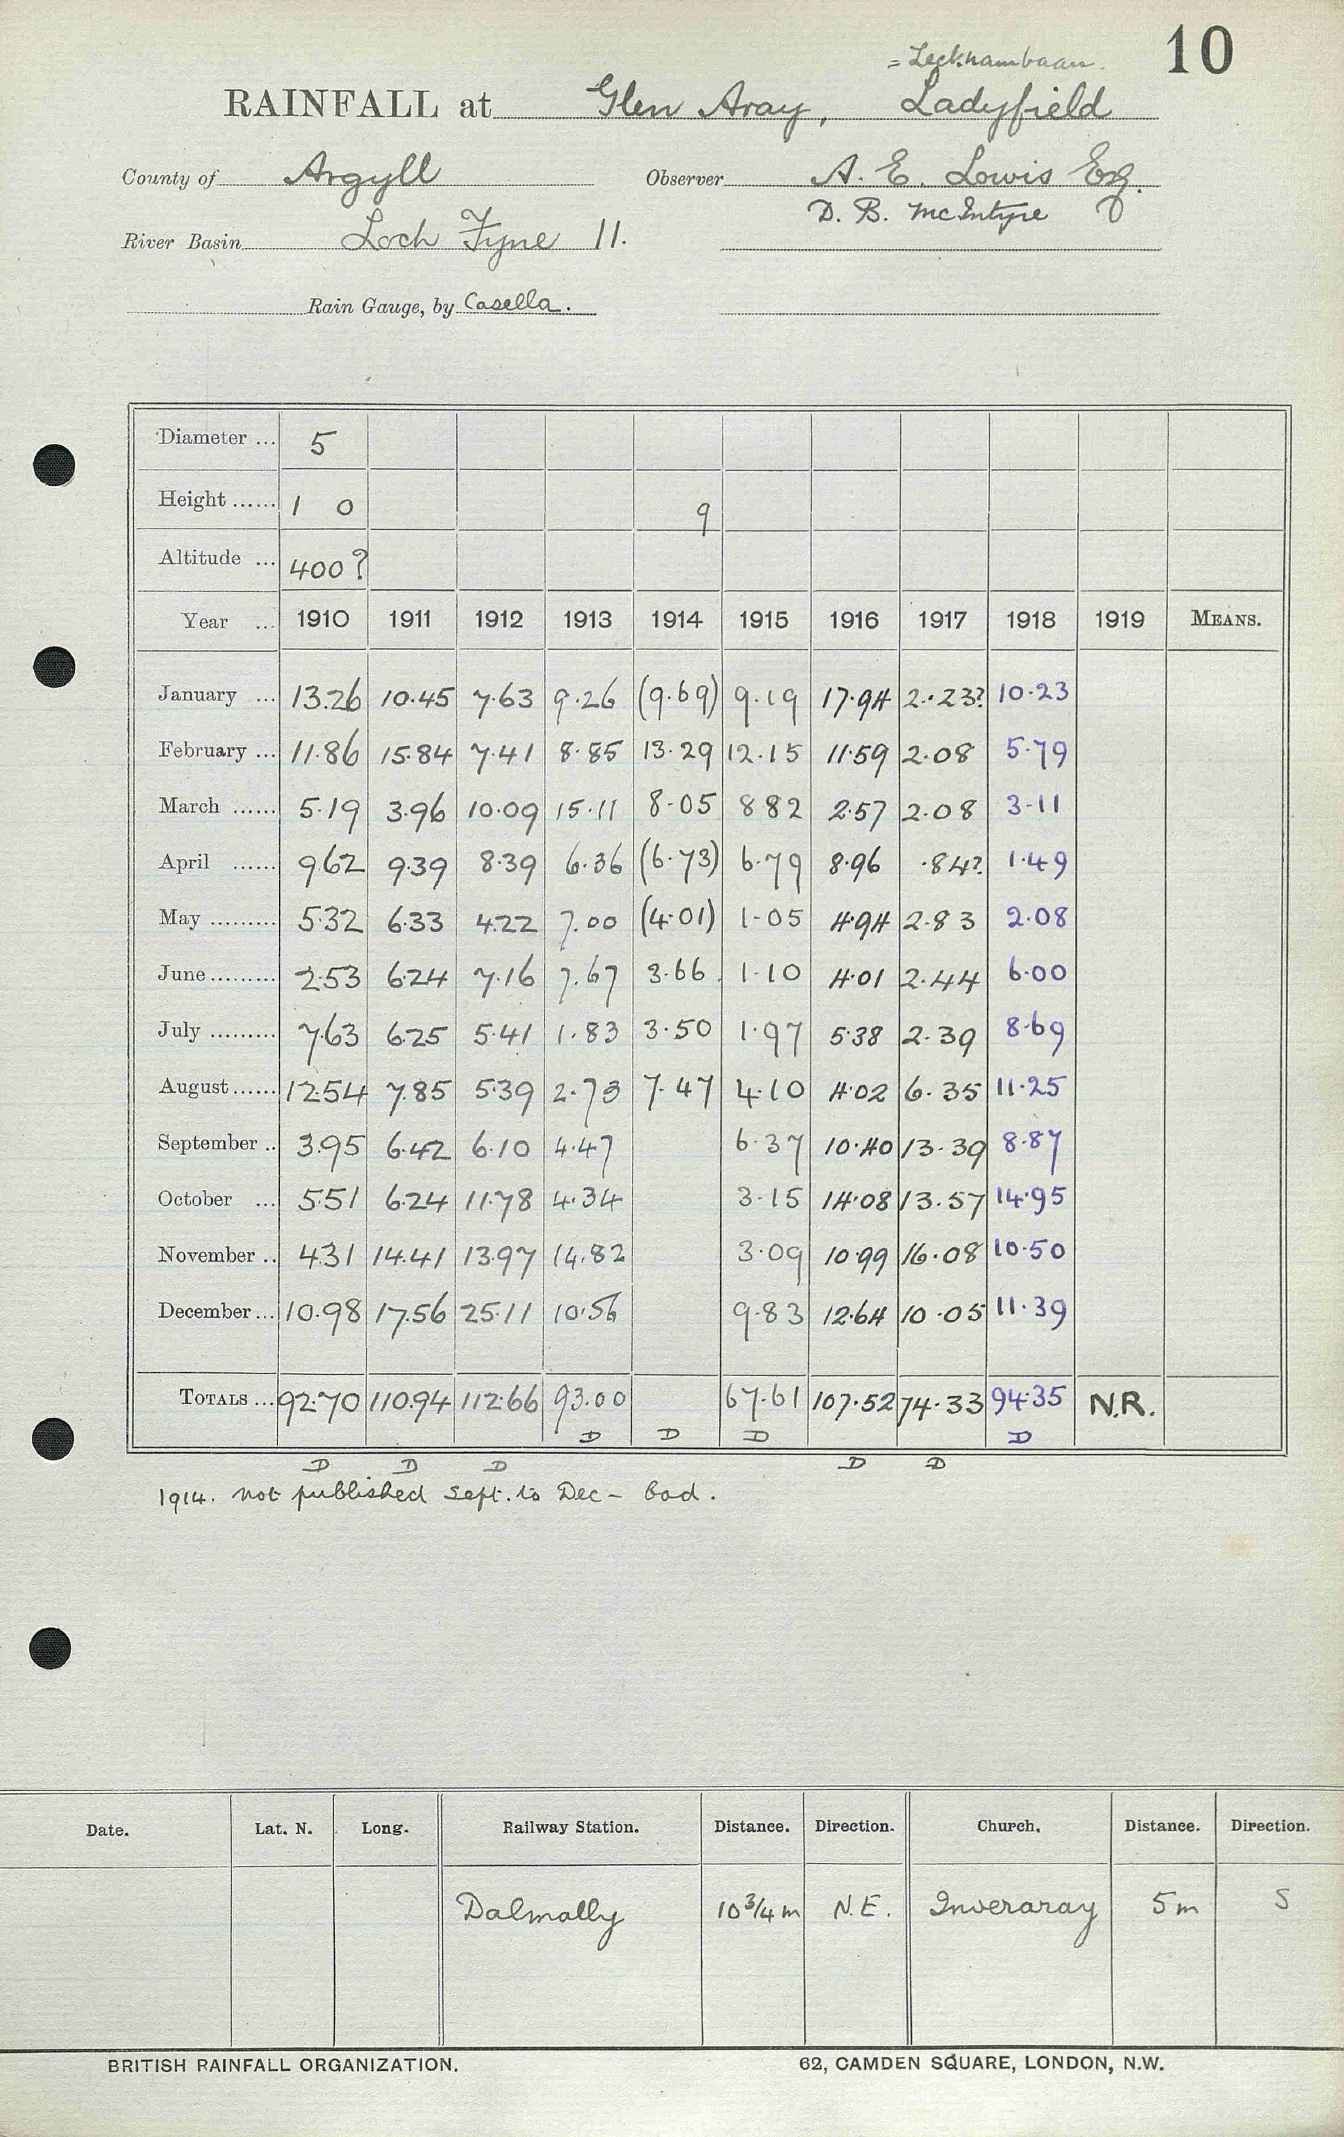 = Lecknambaan. 10
RAINFALL at Glen Aray, Ladyfield
County of Argyll Observer A. E. Lowis Esq.
D. B. McIntyre
River Basin Loch Fyne 11.
Rain Gauge, by Casella.
Diameter ... 5
Height ...... 1 0 9
Altitude ... 400?
Year ... 1910 1911 1912 1913 1914 1915 1916 1917 1918 1919 MEANS.
January ... 13.26 10.45 7.63 9.26 (9.69) 9.19 17.94 2.23? 10.23
February ... 11.86 15.84 7.41 8.85 13.29 12.15 11.59 2.08 5.79
March ...... 5.19 3.96 10.09 15.11 8.05 8 82 2.57 2.08 3.11
April ...... 9.62 9.39 8.39 6.36 (6.73) 6.79 8.96 .84? 1.49
May ......... 5.32 6.33 4.22 7.00 (4.01) 1.05 4.94 2.83 2.08
June ......... 2.53 6.24 7.16 7.67 3.66 1.10 4.01 2.44 6.00
July ......... 7.63 6.25 5.41 1.83 3.50 1.97 5.38 2.39 8.69
August ...... 12.54 7.85 5.39 2.73 7.47 4.10 4.02 6.35 11.25
September .. 3.95 6.42 6.10 4.47 6.37 10.40 13.39 8.87
October ... 5.51 6.24 11.78 4.34 3.15 14.08 13.57 14.95
November .. 4.31 14.41 13.97 14.82 3.09 10.99 16.08 10.50
December ... 10.98 17.56 25.11 10.56 9.83 12.64 10.05 11.39
TOTALS ... 92.70 110.94 112.66 93.00 67.61 107.52 74.33 94.35 N.R.
D D D D
D D D D D
1914. not published Sept. to Dec - bad.
Date. Lat. N. Long. Railway Station. Distance. Direction. Church. Distance. Direction.
Dalmally 10 3/4 m N.E. Inveraray 5 m S
BRITISH RAINFALL ORGANIZATION. 62, CAMDEN SQUARE, LONDON, N.W.